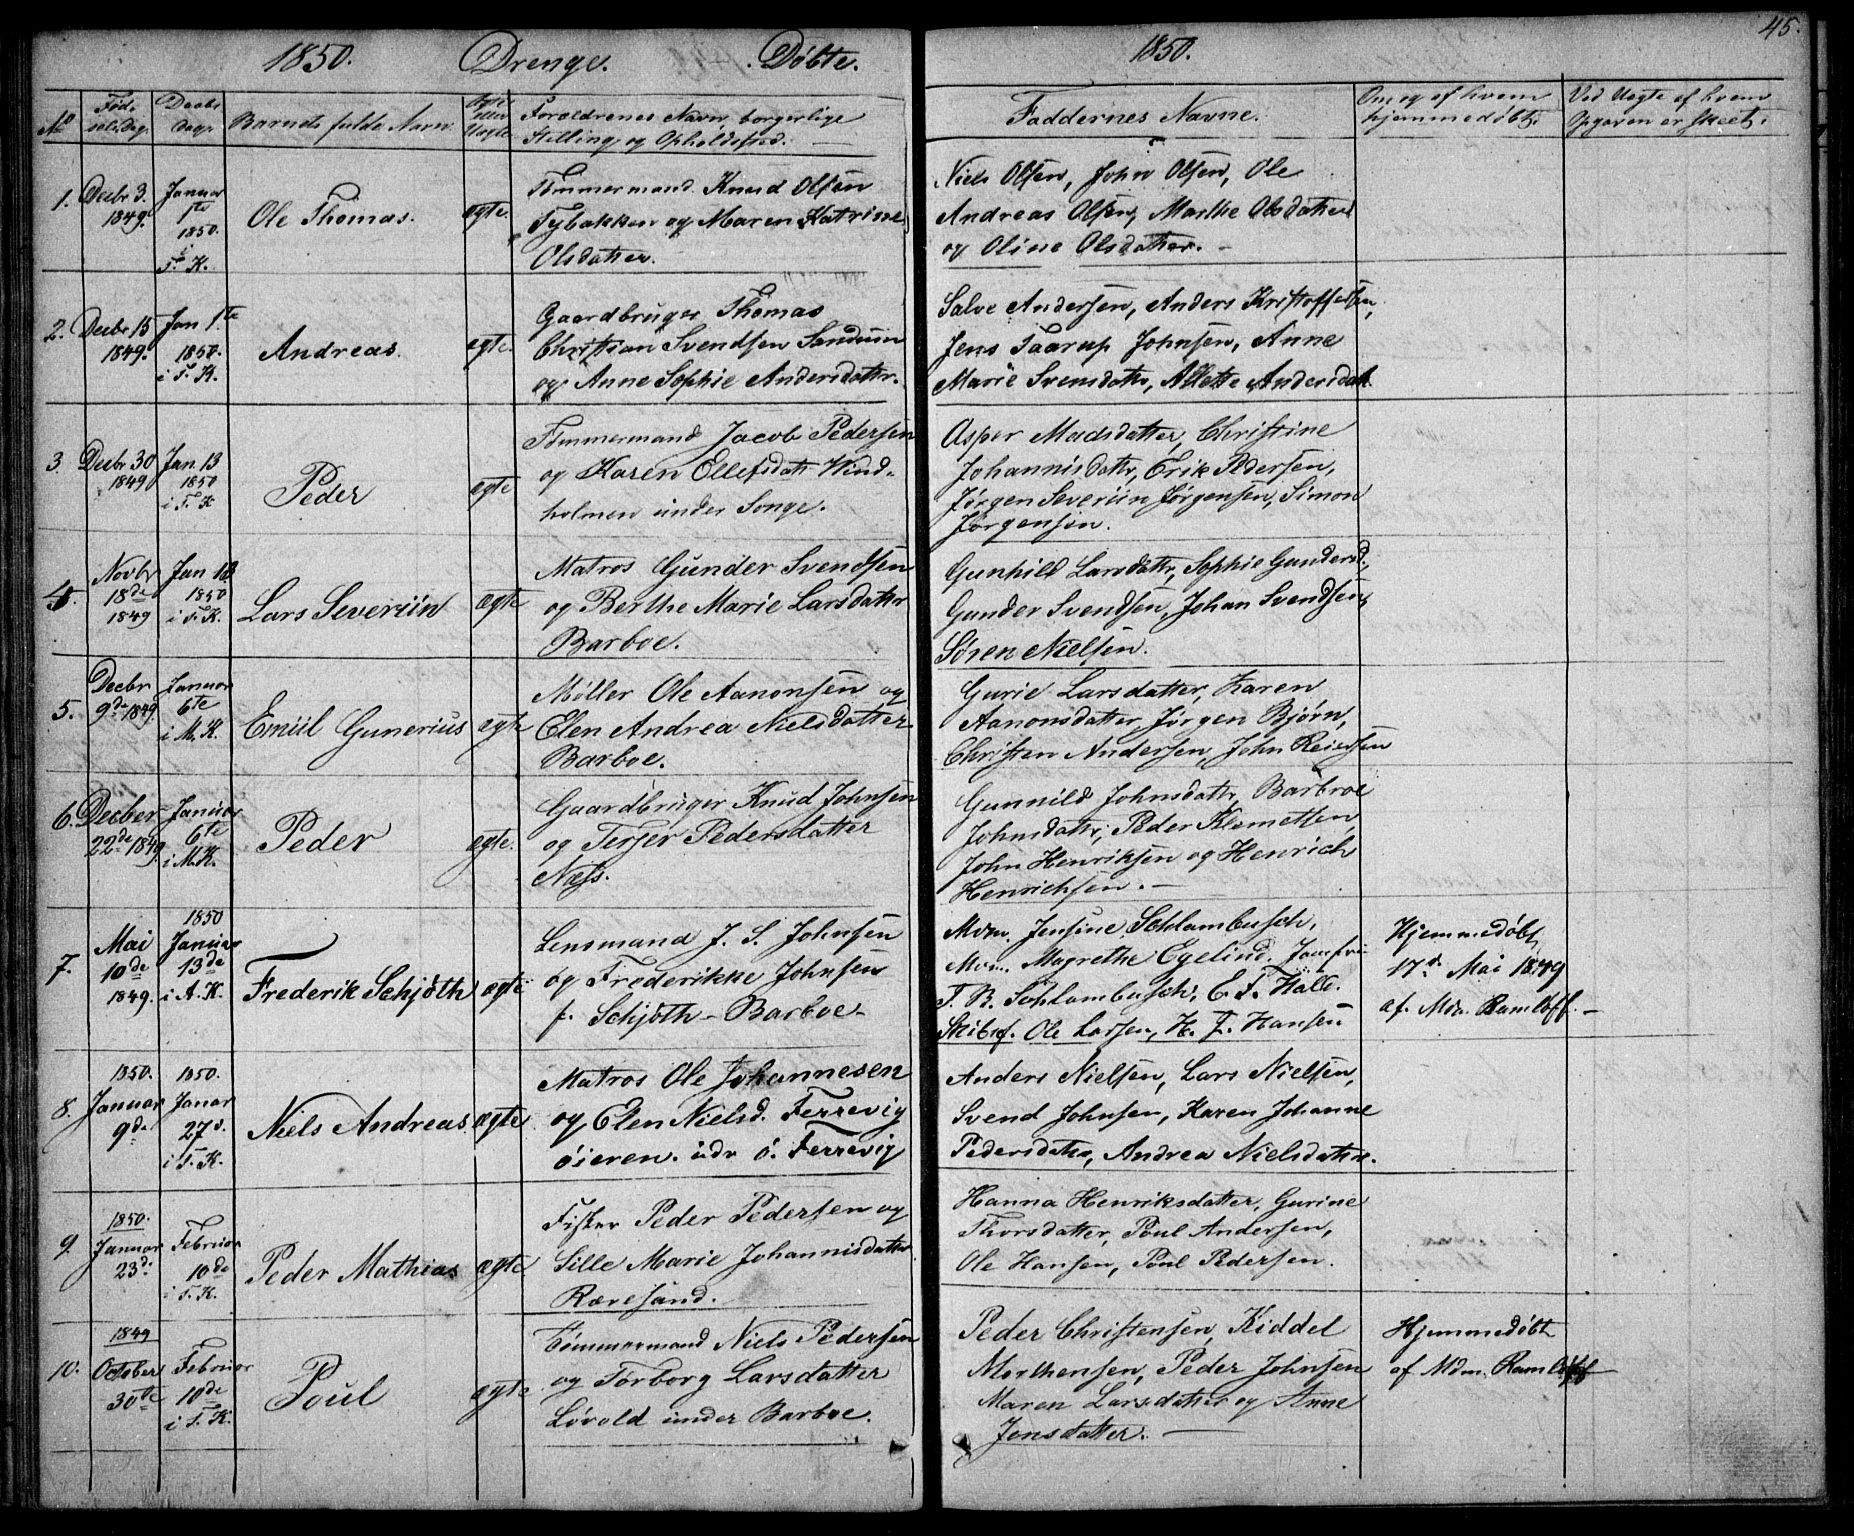 1850. Drenge. Døbte.
No
Fød-
selsdag.
Daabs
Dag.
Barnets fulde Navn.
Ægte
eller
Uægte
Forældrenes Navn, borgerlige
Stilling og Opholdssted.
1.
Decbr 3.
1849.
Januar
1ste
1850.
i
T. K.
Ole Thomas.
ægte.
Tømmermand Knud Olsen
Tybakken og Maren Katrine
Olsdatter.
2.
Decbr 15
1849.
Jan 1.te
1850.
i T. K.
Andreas.
ægte.
Gaardbruger Thomas
Christian Svendsen Sandum
og Anne Sophie Andersdattr.
3.
Decbr 30
1849
Jan 13
1850
i T. K
Peder
ægte
Tømmermand Jacob Pedersen
og Karen Ellefsdatt Wind-
holmen under Songe.
4.
Novbr
18de
1849
Jan 13
1850
i T. K.
Lars Severiin
ægte
Matros Gunder Svendsen
og Berthe Marie Larsdatter
Barboe.
5.
Decbr
9de 1849.
Januar
6te
i M. K.
Emiil Gunerius
ægte
Møller Ole Aanonsen og
Elen Andrea Nielsdatter
Barboe.
6.
Decber
22de 1849.
Januar
6te
i M. K.
Peder
ægte.
Gaardbruger Knud Johnsen
og Terser Pedersdatter
Næss.
7.
Mai
10de
1849.
1850
Januar
13de
i A. K.
Frederik Schjøth
ægte
Lensmand J. S. Johnsen
og Frederikke Johnsen
f. Schjøth - Barboe -
8.
1850.
Januar
9de
1850.
Januar
27d.
i T. K.
Niels Andreas.
ægte
Matros Ole Johannesen
og Elen Nielsd. Terrevig
øieren. udr ó. Terrevig
9.
1850.
Januar
23de
Februar
10de
i T. K.
Peder Mathias
ægte.
Fisker Peder Pedersen og
Sille Marie Johannisdatter
Rævesand.
10.
1849
October
30te
Februar
10de
i T. K.
Poul
ægte
Tømmermand Niels Pedersen
og Torborg Larsdatter
Løvold under Barboe.
45.
1850.
Faddernes Navne.
Om og af hvem
hjemmedøbt.
Ved Uægte af hvem
Opgaven er skeet.
Niels Olsen, John Olsen, Ole
Andreas Olsen, Marthe Olsdatter
og Oline Olsdatter. -
Salve Andersen, Anders Kristoffersen,
Jens Taarup Johnsen, Anne
Marie Svensdattr, Allette Andersdatt.
Asper Madsdatter, Christine
Johannisdattr, Erik Pedersen,
Jørgen Severiin Jørgensen, Simon
Jørgensen.
Gunhild Larsdattr, Sophie Gundersd.,
Gunder Svendsen, Johan Svendsen,
Søren Nielsen.
Gurie Larsdatter, Karen
Aanonsdatter, Jørgen Bjørn,
Christen Andersen, John Reiersen
Gunnild Johnsdattr, Barbroe
Johnsdattr, Peder Klemetsen
John Henriksen og Henrich
Henrichsen. -
Mdm. Jensine Schlambusch,
Mdm. Magrethe Egelind. Jomfru
T. B. Schlambusch, E. F. Hall.
Skibsf. Ole Larsen, H. J. Hansen
Hjemmedøbt
17d. Mai 1849
af Mdm. Ramløff. -
Anders Nielsen, Lars Nielsen,
Svend Johnsen, Karen Johanne
Pedersdattr, Andrea Nielsdattr.
Hanna Henriksdatter, Gurine
Thorsdatter, Poul Andersen,
Ole Hansen, Poul Pedersen.
Peder Christensen, Kiddel
Morthensen, Peder Johnsen
Maren Larsdatter og Anne
Jensdatter. -
Hjemmedøbt
af Mdm. Ramløff